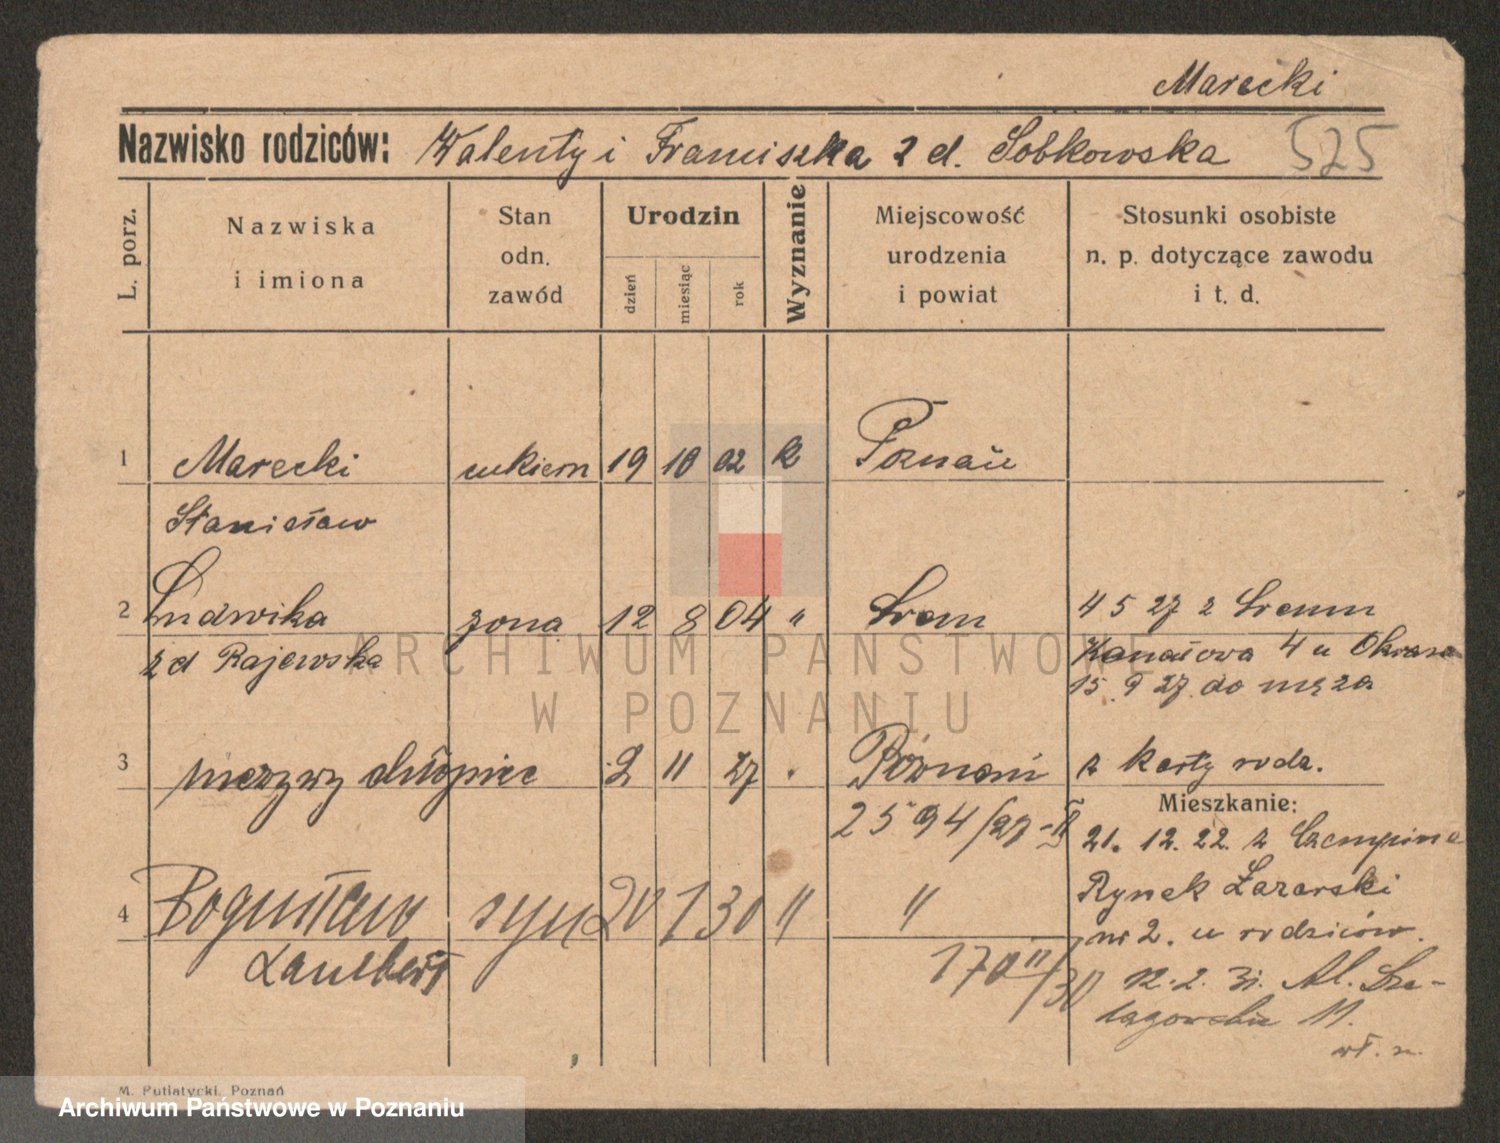 Marecki
Nazwisko rodziców: Walenty i Franciszka z d. Sobkowska 525
L. porz.
Nazwiska
i imiona
Stan
odn.
zawód
Urodzin
dzień
miesiąc
rok
Wyznanie
Miejscowość
urodzenia
i powiat
Stosunki osobiste
n. p. dotyczące zawodu
i t. d.
1 Marecki cukiern 19 10 02 k Poznań
Stanisław
2 Ludwika żona 12 8 04 " Śrem 4 5 27 z Śremu
z d Rajewska Kanałowa 4 u
15. 9 27. do męża
3 nieżywy chłopiec 2 11 27 Poznań z karty rodz.
2594/27-II
Mieszkanie:
21. 12. 22. z Czempina
4 Bogusław syn 20 1 30 " " Rynek Łazarski
nr 2. u rodziców.
Lambert 170 II/30 12. 2. 31. Al. Sze-
lągowska 11.
M. Putiatycki, Poznań
Archiwum Państwowe w Poznaniu
ARCHIWUM PAŃSTWOWE
W POZNANIU